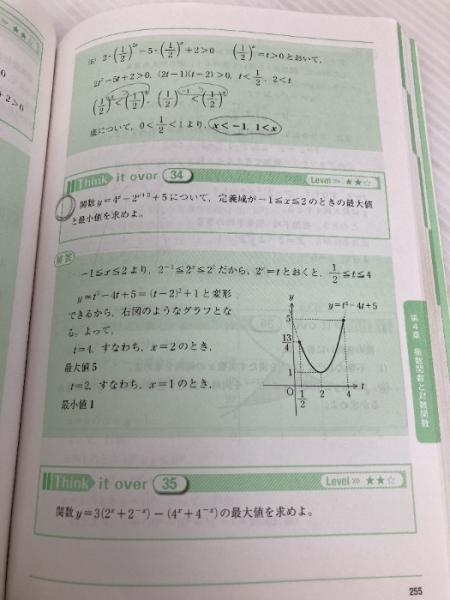 (6) 2・(1/2)^{2x}−5・(1/2)^x+2>0 (1/2)^x=t>0とおいて,
2t²−5t+2>0, (2t−1)(t−2)>0, t<1/2, 2<t
底について, 0<1/2<1より, x<−1, 1<x
Think it over 34 Level≫ ★★☆
関数y=4^x−2^{x+2}+5について, 定義域が−1≦x≦2のときの最大値
と最小値を求めよ。
解答
−1≦x≦2より, 2^{−1}≦2^x≦2²だから, 2^x=tとおくと, 1/2≦t≦4
y=t²−4t+5=(t−2)²+1と変形
できるから, 右図のようなグラフとな
る。よって,
t=4, すなわち, x=2のとき,
最大値5
t=2, すなわち, x=1のとき,
最小値1
y
y=t²−4t+5
5
13/4
1
O 1/2 2 4 t
第4章 指数関数と対数関数
Think it over 35 Level≫ ★★☆
関数y=3(2^x+2^{−x})−(4^x+4^{−x})の最大値を求めよ。
255